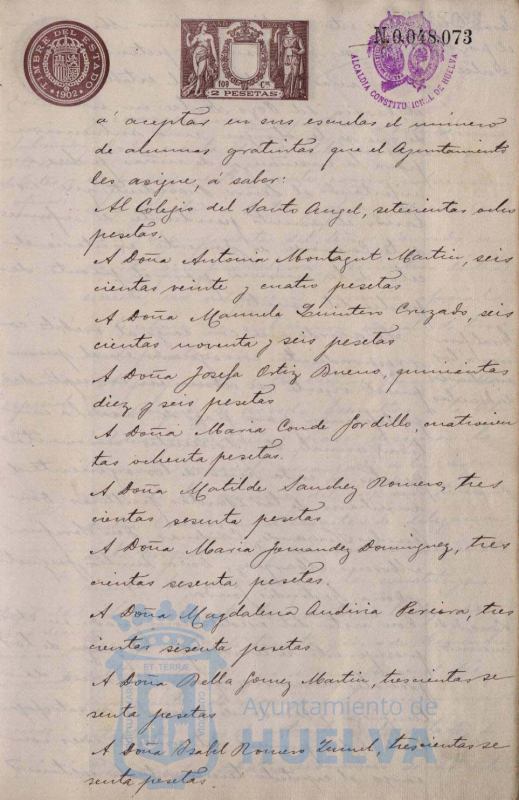 TIMBRE DEL ESTADO
1902
109 Cs
2 PESETAS
N.0.048.073
ALCALDIA CONSTITUCIONAL DE HUELVA
á aceptar en sus escuelas el número
de alumnas gratuitas que el Ayuntamiento
les asigne, á saber:
Al Colegio del Santo Angel, setecientas ocho
pesetas.
A Doña Antonia Montagut Martin, seis
cientas veinte y cuatro pesetas
A Doña Manuela Quintero Cruzado, seis
cientas noventa y seis pesetas
A Doña Josefa Ortiz Bueno, quinientas
diez y seis pesetas
A Doña Maria Conde Jordillo, cuatrocien
tas ochenta pesetas.
A Doña Matilde Sanchez Romero, tres
cientas sesenta pesetas
A Doña Maria Fernandez Dominguez, tres
cientas sesenta pesetas.
A Doña Magdalena Andivia Pereira, tres
cientas sesenta pesetas
A Doña Bella Gomez Martin, trescientas se
senta pesetas
A Doña Isabel Romero, trescientas se
senta pesetas.
ET TERRÆ
Ayuntamiento de
HUELVA